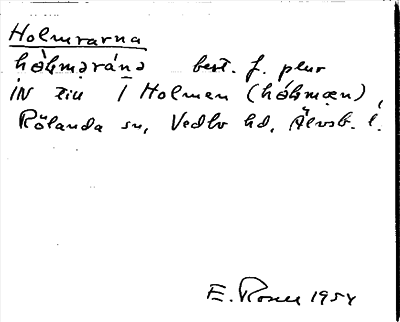 Holmrarna
hòɫməránə best. f. plur
IN till 1 Holmen (hóɫmæn),
Rölanda sn, Vedbo hd, Älvsb. l.
E. Rosell 1954